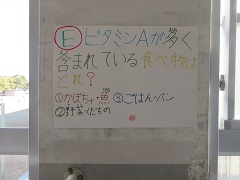 ⒺビタミンAが多く
含まれている食べ物は
どれ?
①かぼちゃ・魚 ③ごはん・パン
②野菜・くだもの